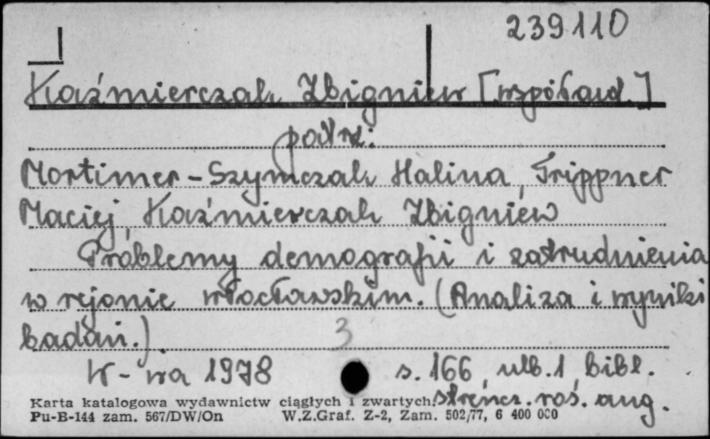 239110
Kaźmierczak Zbigniew [współaut.]
patrz:
Mortimer-Szymczak Halina, Trippner
Maciej, Kaźmierczak Zbigniew
Problemy demografii i zatrudnienia
w rejonie włocławskim. (Analiza i wyniki
badań.)
3
W-wa 1978 s. 166, nlb. 1 bibl.
streszcz. roś. ang.
Karta katalogowa wydawnictw ciągłych i zwartych.
Pu-B-144 zam. 567/DW/On W.Z.Graf. Z-2, Zam. 502/77, 6 400 000